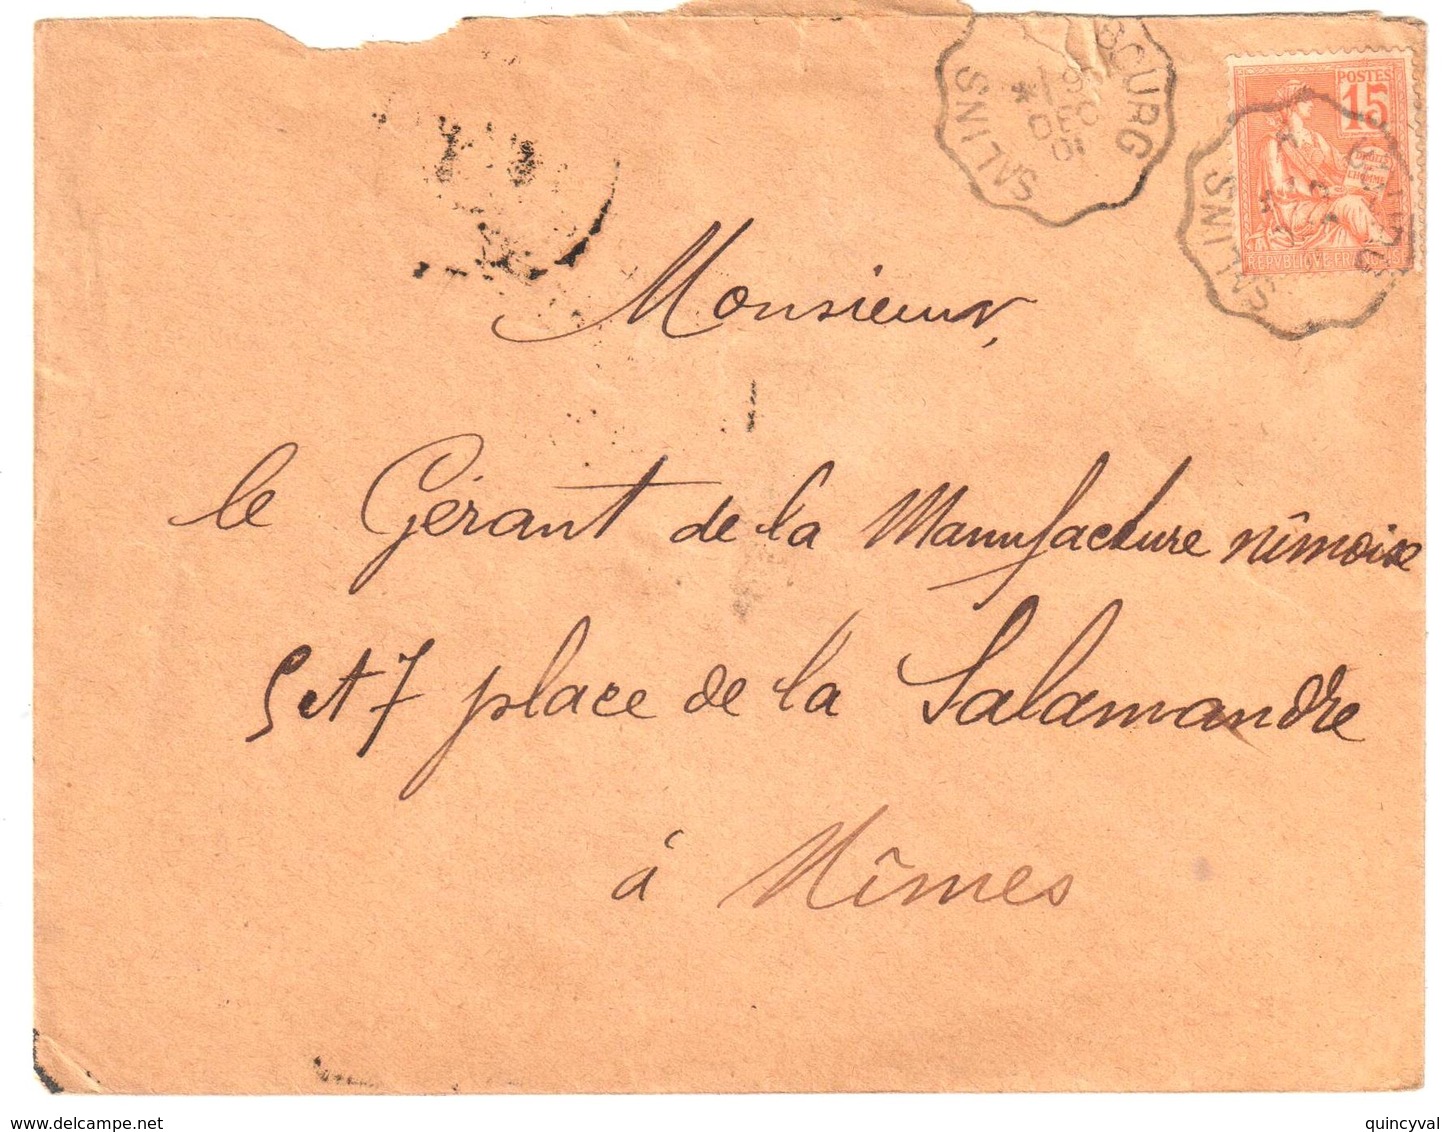 SALINS
BOURG
19
DEC
01
POSTES
15
DROITS
DE
L'HOMME
REPVBLIQVE FRANÇAISE
SALINS
Monsieur,
le Gérant de la Manufacture nîmoise
5 et 7 place de la Salamandre
à Nîmes
www.delcampe.net
quincyval